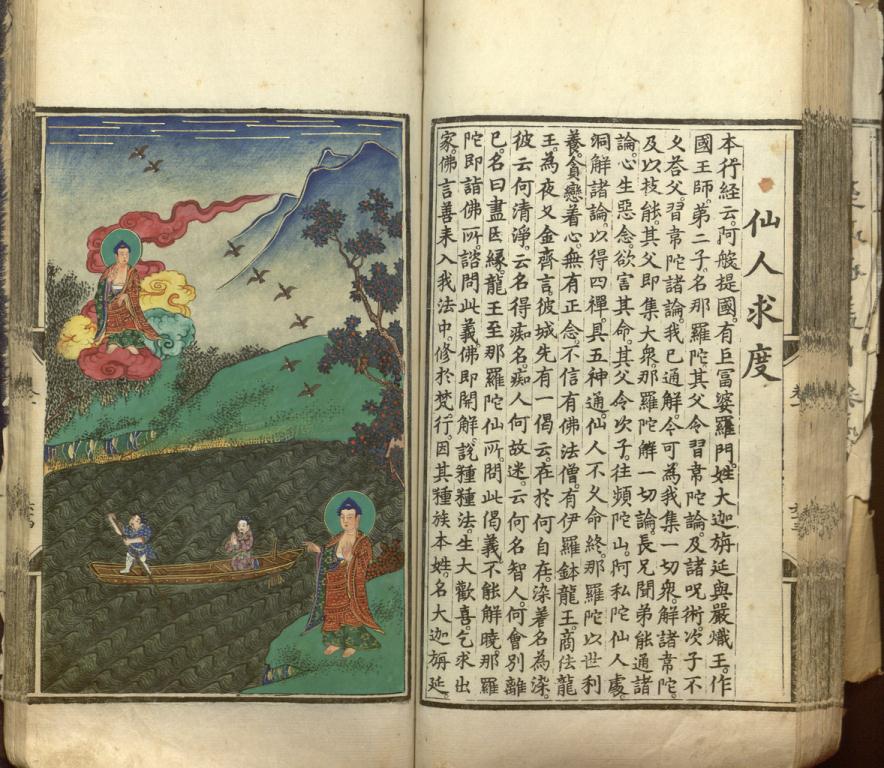 仙人求度
本行経云。阿般提國。有巨富婆羅門。姓大迦旃延。與嚴熾王。作
國王師。第二子。名那羅陀。其父令習韋陀論。及諸呪術。次子不
久荅父。習韋陀諸論。我已通解。今可為我集一切衆。解諸韋陀。
及以技能。其父即集大衆。那羅陀解一切論。長兄聞弟能通諸
論。心生惡念。欲害其命。其父令次子。往頻陀山。阿私陀仙人處。
洞解諸論。以得四禪。具五神通。仙人不久命終。那羅陀以世利
養。貪戀着心。無有正念。不信有佛法僧。有伊羅鉢龍王。商佉龍
王。為夜叉金齊言。彼城先有一偈云。在於何自在。染著名為染。
彼云何清淨。云何得痴名。痴人何故迷。云何名智人。何會別離
已。名曰盡因緣。龍王至那羅陀仙所。問此偈義。不能解曉。那羅
陀即詣佛所。諮問此義。佛即開解。說種種法。生大歡喜。乞求出
家。佛言善来入我法中。修於梵行。因其種族本姓。名大迦旃延。